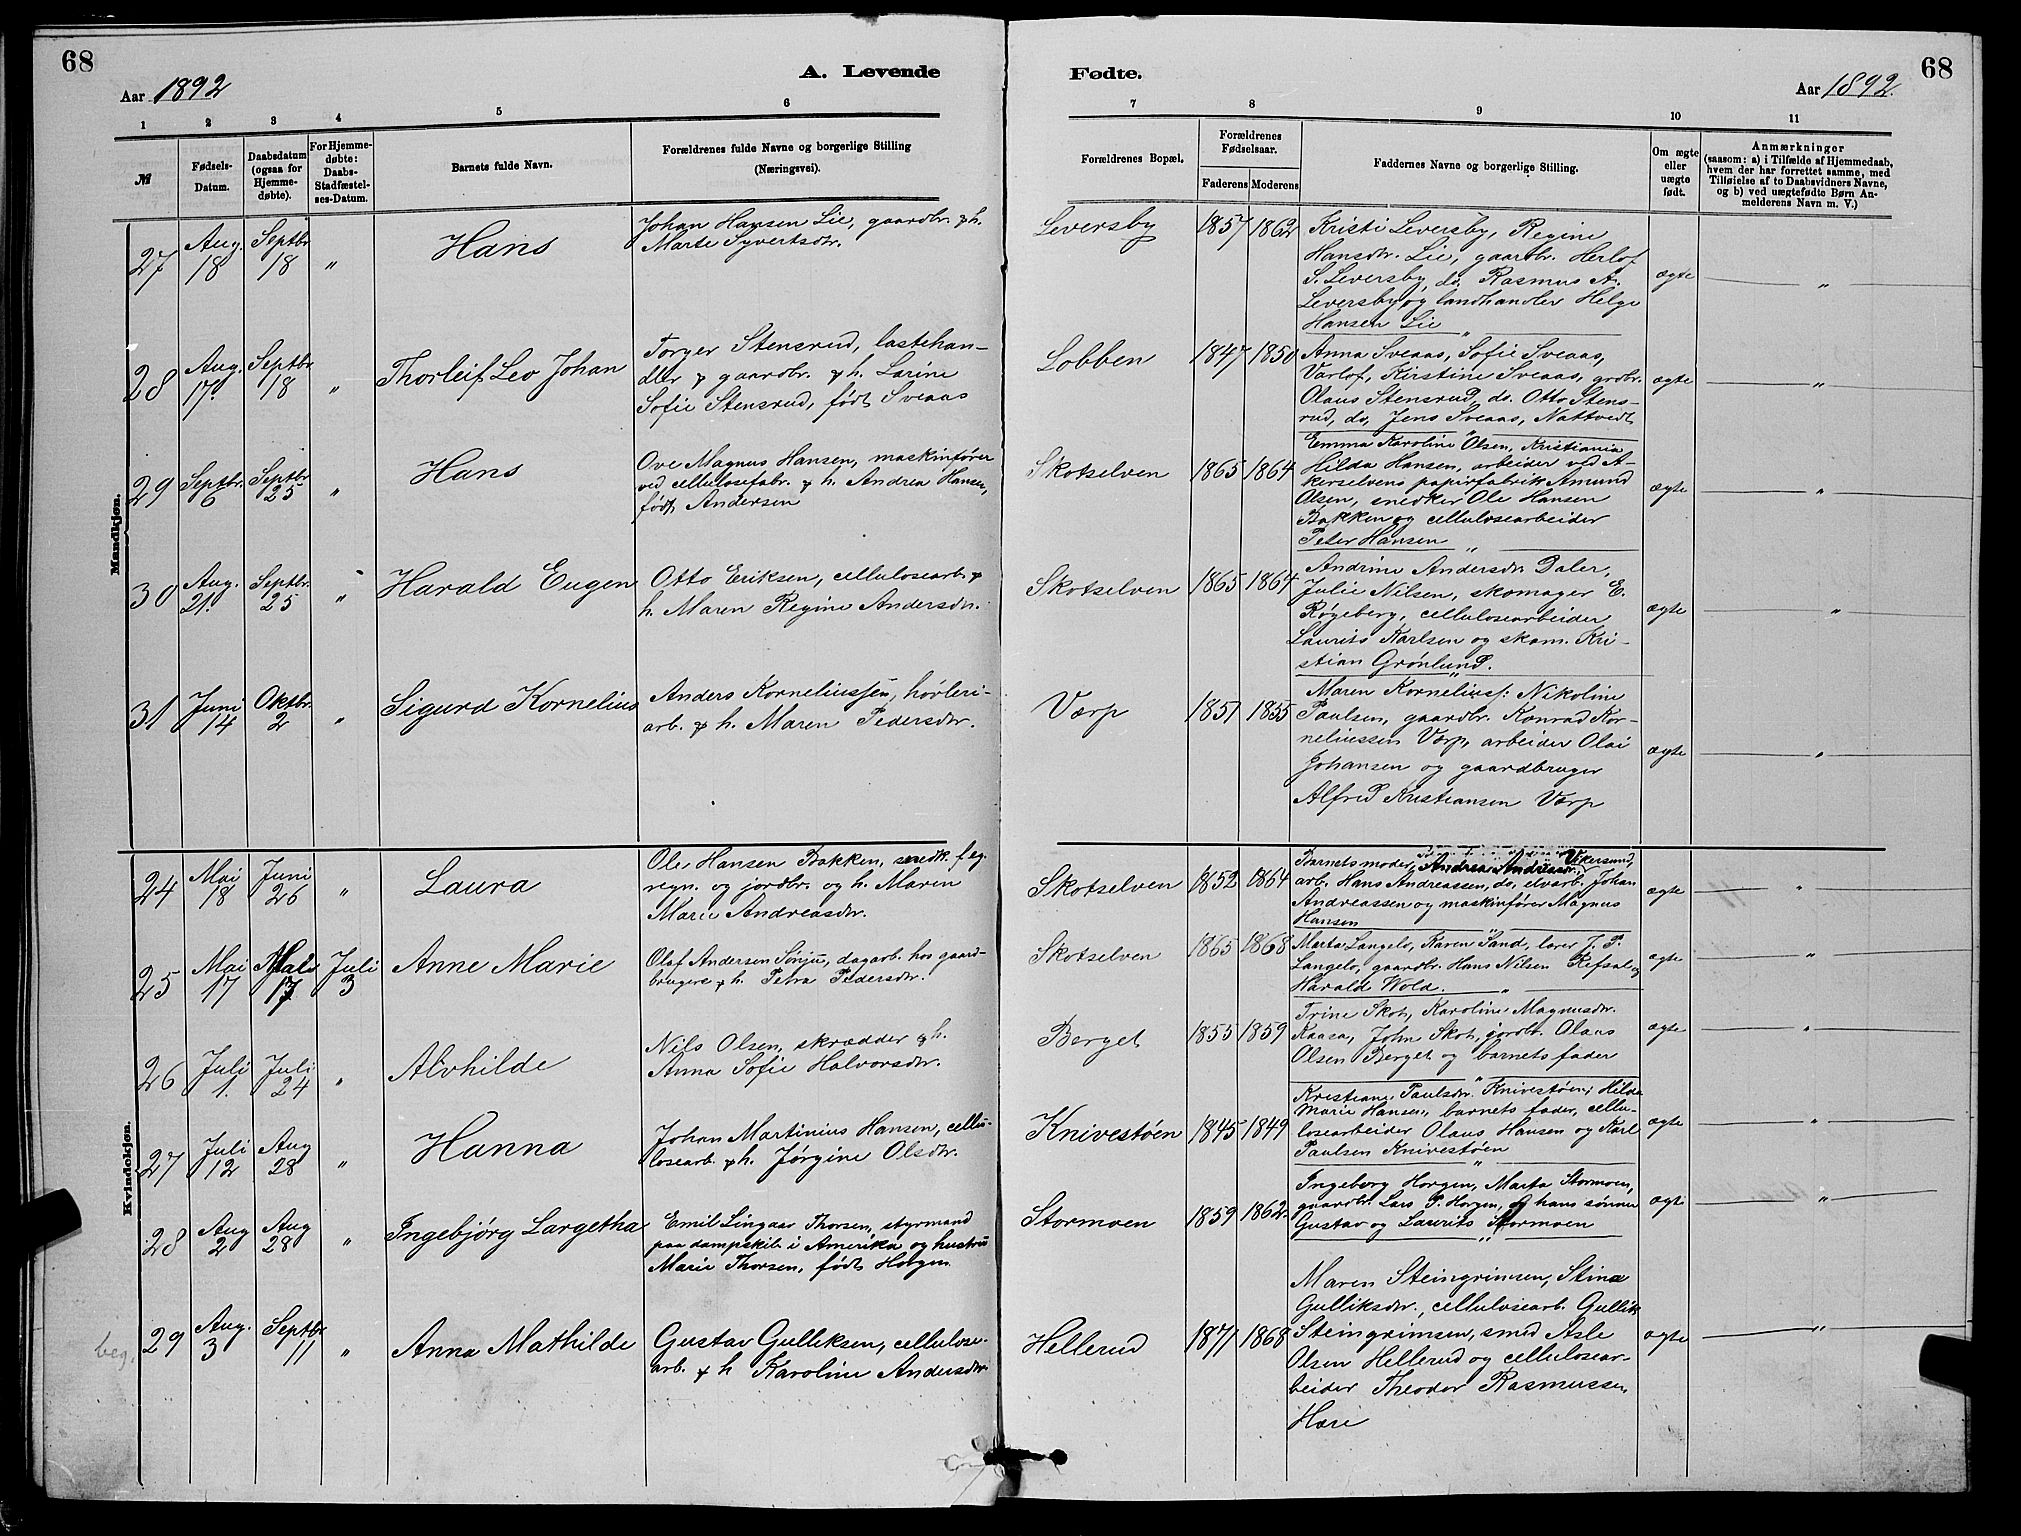 68
Aar 1892
A. Levende
1 2 3 4 5 6
№
Fødsels-
Datum.
Daabsdatum
(ogsaa for
Hjemme-
døbte).
For Hjemme-
døbte:
Daabs-
Stadfæstel-
ses-Datum.
Barnets fulde Navn.
Forældrenes fulde Navne og borgerlige Stilling
(Næringsvei).
Fødte.
68
Aar 1892.
7 8 9 10 11
Forældrenes Bopæl.
Forældrenes
Fødselsaar.
Faderens Moderens
Faddernes Navne og borgerlige Stilling.
Om ægte
eller
uægte
født.
Anmærkninger
(saasom: a) i Tilfælde af Hjemmedaab,
hvem der har forrettet samme, med
Tilføielse af to Daabsvidners Navne,
og b) ved uægtefødte Børn An-
melderens Navn m. V.)
Mandkjøn.
27
Aug.
18
Septbr
18
"
Hans
Johan Hansen Lie, gaardbr. & h.
Marte Syvertsdtr.
Leversby
1857 1862
Kristi Leversby, Regine
Hansdtr. Lie, gaardbr. Herlof
S. Leversby, do. Rasmus A.
Leversby og landhandler Helge
Hansen Lie
ægte
"
28
Aug.
17.
Septbr
18
"
Thorleif Leo Johan
Torger Stensrud, lastehan-
dler & gaardbr. & h. Larine
Sofie Stensrud, født Sveaas
Lobben
1847 1850
Anna Sveaas, Sofie Sveaas,
Varlof, Kirstine Sveaas, grdbr.
Olaus Stensrud, do. Otto Stens-
rud, do, Jens Sveaas, Nattvedt
ægte
"
29
Septbr.
6
Septbr
25
"
Hans
Ove Magnus Hansen, maskinfører
ved cellulosefabr. & h. Andrea Hansen,
født Andersen
Skotselven
1865 1864
Emma Karoline Olsen, Kristiania
Hilda Hansen, arbeider ved A-
kerselvens papirfabrik Amund
Olsen, snedker Ole Hansen
Bakken og cellulosearbeider
Peter Hansen
ægte
"
30
Aug.
21.
Septbr.
25
"
Harald Eugen
Otto Eriksen, cellulosearb. &
h. Maren Regine Andersdtr.
Skotselven
1865 1864
Andrine Andersdtr. Daler,
Julie Nilsen, skomager E.
Røgeberg, cellulosearbeider
Laurits Karlsen og skom. Kri-
stian Grønlund.
ægte
"
31
Juni
14
Oktbr.
2
"
Sigurd Kornelius
Anders Korneliussen, høvleri-
arb. & h. Maren Pedersdtr.
Værp
1851 1855
Maren Korneliuss: Nikoline
Paulsen, gaardbr. Konrad Kor-
neliussen Værp, arbeider Olai
Johansen og gaardbruger
Alfred Kristiansen Værp
ægte
"
Kvindekjøn.
24
Mai
18
Juni
26
"
Laura
Ole Hansen Bakken, snedk. f. eg.
regn. og jordbr. og h. Maren
Marie Andreasdtr.
Skotselven
1852 1864
Barnets moder, Andrea Andreasdtr., Vikersund,
arb. Hans Andreassen, do, elvarb. Johan
Andreassen og maskinfører Magnus
Hansen
ægte
"
25
Mai
17
17
Juli
3
Anne Marie
Olaf Andersen Sønju, dagarb. hos gaard-
brugere & h. Petra Pedersdtr.
Skotselven
1865 1868
Marta Langelo, Karen Sand, lærer J. P.
Langelo, gaardbr. Hans Nilsen Refsal og
Harald Wold.
ægte
"
26
Juli
1.
Juli
24
"
Alvhilde
Nils Olsen, skrædder & h.
Anna Sofie Halvorsdtr.
Berget
1855 1859
Trine Skot, Karoline Magnusdtr.
Kaasa, John Skot, jordbr. Olaus
Olsen Berget og barnets fader
ægte
"
27
Juli
12
Aug
28
"
Hanna
Johan Martinius Hansen, cellu-
losearb. & h. Jørgine Olsdtr.
Knivestøen
1845 1849
Kristiane Paulsdtr. Knivestøen, Hilda
Marie Hansen, barnets fader, cellu-
losearbeider Olaus Hansen og Karl
Paulsen Knivestøen
ægte
"
28
Aug
2
Aug
28
"
Ingebjørg Largetha
Emil Lingaas Thorsen, styrmand
paa dampskib i Amerika og hustru
Marie Thorsen, født Horgen
Stormoen
1859 1862
Ingeborg Horgen, Marta Stormoen,
gaardbr. Lars P. Horgen, og hans sønner
Gustav og Laurits Stormoen
ægte
"
beg.
29
Aug.
3
Septbr
11
"
Anna Mathilde
Gustav Gulliksen, cellulose-
arb. & h Karoline Andersdtr
Hellerud
1871 1868
Maren Steingrimsen, Stina
Gulliksdtr., cellulosearb. Gullik
Steingrimsen, smed Asle
Olsen Hellerud og cellulosear-
beider Theodor Rasmussen
Hære
ægte
"